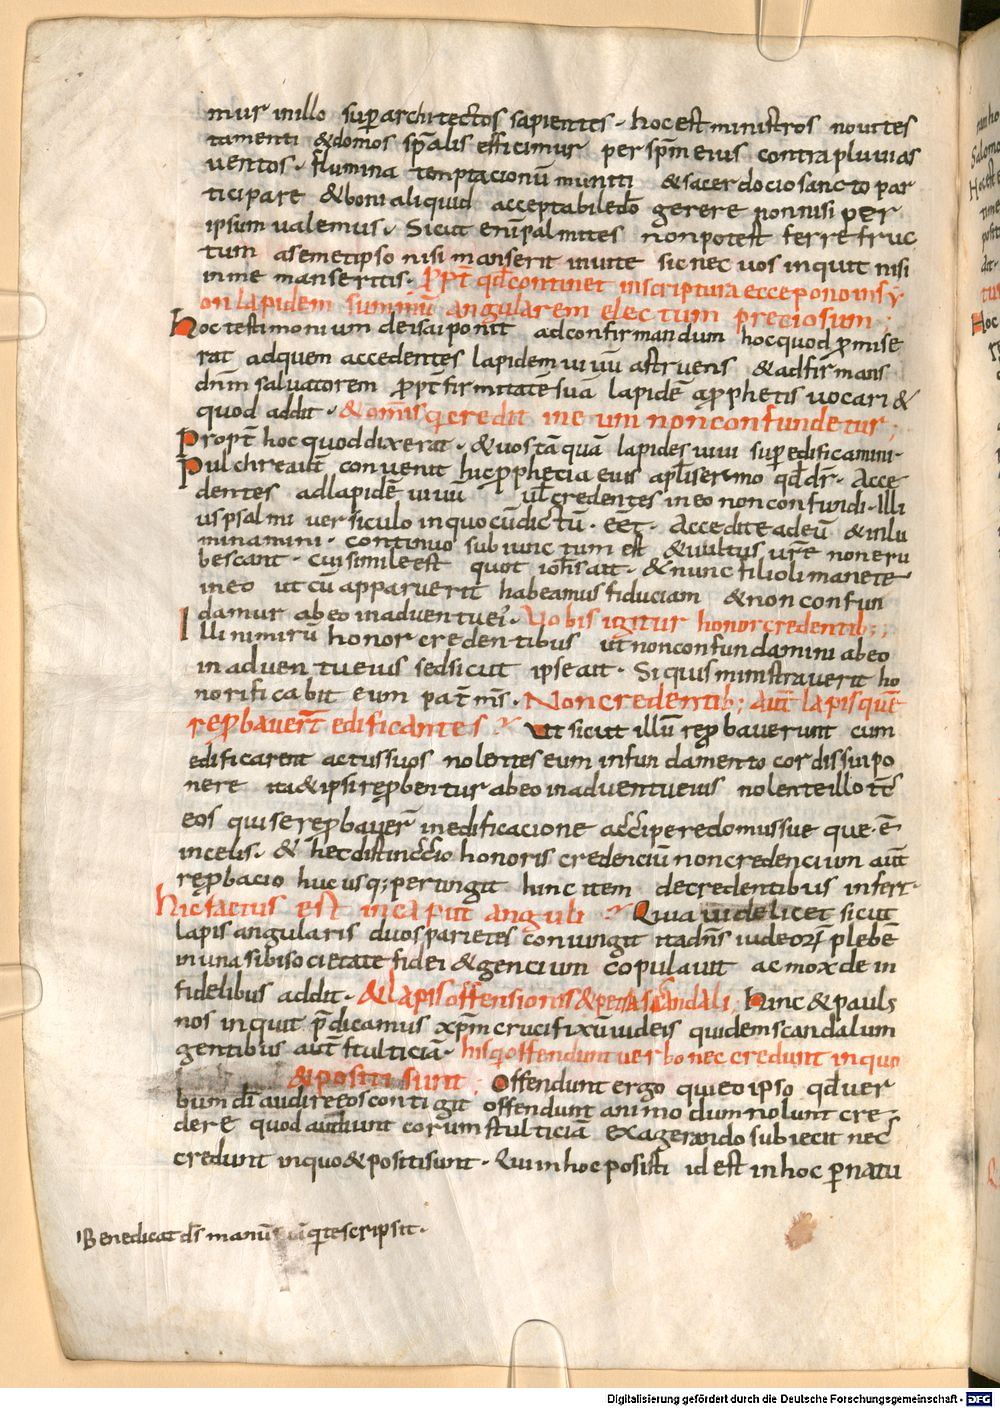 mur in illo sup architectos sapientes · hoc est ministros noui tes
tamenti & domos sp̄alis efficimur per sp̄m eius contra pluuias
uentos · flumina temptacionū munti & sacerdocio sancto par
ticipare & boni aliquid acceptabile dō gerere non nisi per
ipsum ualemus · Sicut eni palmites non potest ferre fruc
tum a semetipso nisi manserit in uite sic nec uos inquit nisi
in me manseritis · Ppt̄ qd̄ continet in scriptura ecce pono in sy
on lapidem summū angularem electum preciosum ;
Hoc testimonium de isai ponit ad confirmandum hoc quod ꝓmise
rat ad quem accedentes lapidem uiuū astruens & adfirmans
dnm saluatorem ꝓpt̄ firmitatē suā lapidē a ꝓphetis uocari &
quod addit · & om̄is q credit in eum non confundetur ;
Propt̄ hoc quod dixerat · & uos tā quā lapides uiui sup edificamini ·
Pulchre aut̄ conuenit huic ꝓphecia eius apli sermo qd̄ dr̄ · Acce
dentes ad lapidē uiuū ul̄ credentes in eo non confundi · Illi
us psalmi uersiculo in quo cū dictū · eēt · Accedite ad eū & inlu
minamini · continuo subiunctum est & uultus ur̄e non eru
bescant · cui simile est quot ioh̄s ait · & nunc filioli manete
in eo ut cū apparuerit habeamus fiduciam & non confun
damur ab eo in aduentu ei · Uobis igitur honor credentib; ;
Illi nimirū honor credentibus ut non confundamini ab eo
in aduentu eius sed sicut ipse ait · Si quis mi ministrauerit ho
norificabit eum pat̄ ms̄ · Non credentib; aut̄ lapis quē
reꝓbauer̄t edificantes · Ut sicut illū reꝓbauerunt cum
edificarent actus suos nolentes eum in fundamento cordis sui po
nere ita & ipsi reꝓbentur ab eo in aduentu eius nolente illo tc̄
eos qui se reꝓbauer̄ in edificacione accipere domus sue que · ē
in celis · & hec distinccio honoris credenciū non credencium aut̄
reꝓbacio huc usq; pertingit hinc item de credentibus infert ·
Hic factus est in caput anguli · Quia uidelicet sicut
lapis angularis duos parietes coniungit ita dn̄s iudeoꝝ plebē
in una sibi societate fidei & gencium copulauit ac mox de in
fidelibus addit · & lapis offensionis & petra scandali ; hinc & pauls
nos inquit p̄dicamus xp̄m crucifixū iudeis quidem scandalum
gentibus aut̄ stulticiā · his qi offendunt uerbo nec credunt in quo
& positi sunt ; Offendunt ergo qui eo ipso qd̄ uer
bum dī audire eos contigit offendunt animo dum nolunt cre
dere quod audiunt eorum stulticiā exagerando subiecit nec
credunt in quo & positi sunt · Qui in hoc positi id est in hoc ꝑ natu
Benedicat ds̄ manū q te scripsit ·
Digitalisierung gefördert durch die Deutsche Forschungsgemeinschaft - DFG